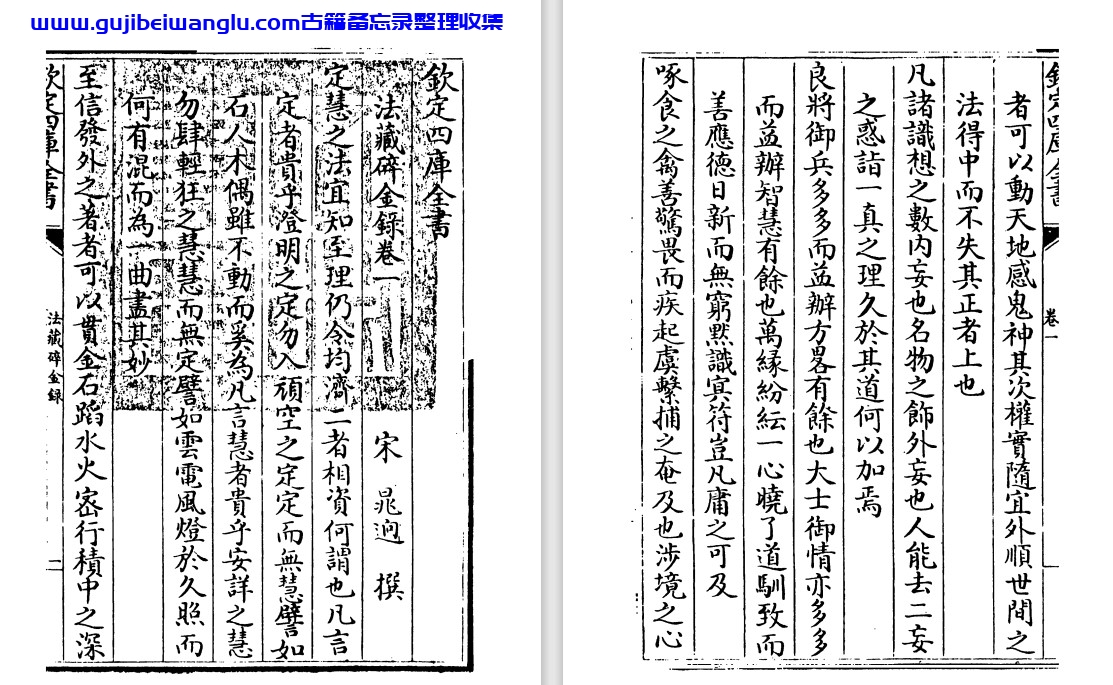 www.gujibeiwanglu.com古籍备忘录整理收集
欽定四庫全書
法藏碎金錄卷一 宋 晁迥 撰
定慧之法宜知至理仍令均濟二者相資何謂也凡言
定者貴乎澄明之定勿入頑空之定定而無慧譬如
石人木偶雖不動而奚為凡言慧者貴乎安詳之慧
勿肆輕狂之慧慧而無定譬如雲電風燈於久照而
何有混而為一曲盡其妙
至信發外之著者可以貫金石蹈水火宻行積中之深
欽定四庫全書 法藏碎金録 二
欽定四庫全書 卷一
者可以動天地感鬼神其次權實隨宜外順世間之
法得中而不失其正者上也
凡諸識想之數内妄也名物之飾外妄也人能去二妄
之惑詣一真之理久於其道何以加焉
良將御兵多多而益辦方畧有餘也大士御情亦多多
而益辦智慧有餘也萬緣紛紜一心曉了道馴致而
善應德日新而無窮黙識冥符豈凡庸之可及
啄食之禽善驚畏而疾起虞繫捕之奄及也涉境之心